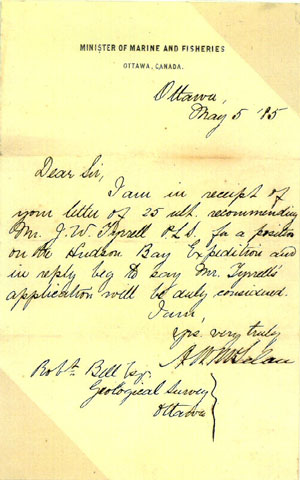 MINISTER OF MARINE AND FISHERIES
OTTAWA, CANADA.
Ottawa,
May 5 '85
Dear Sir,
I am in receipt of
your letter of 25 ult. recommending
Mr. J. W. Tyrrell P.L.S. for a position
on the Hudson Bay Expedition and
in reply beg to say Mr. Tyrrell's
application will be duly considered.
I am
yrs. very truly
A. W. McLelan
Robt. Bell Esq.
Geological Survey
Ottawa